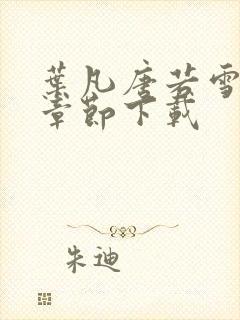 葉凡唐若雪
章節下載
朱迪